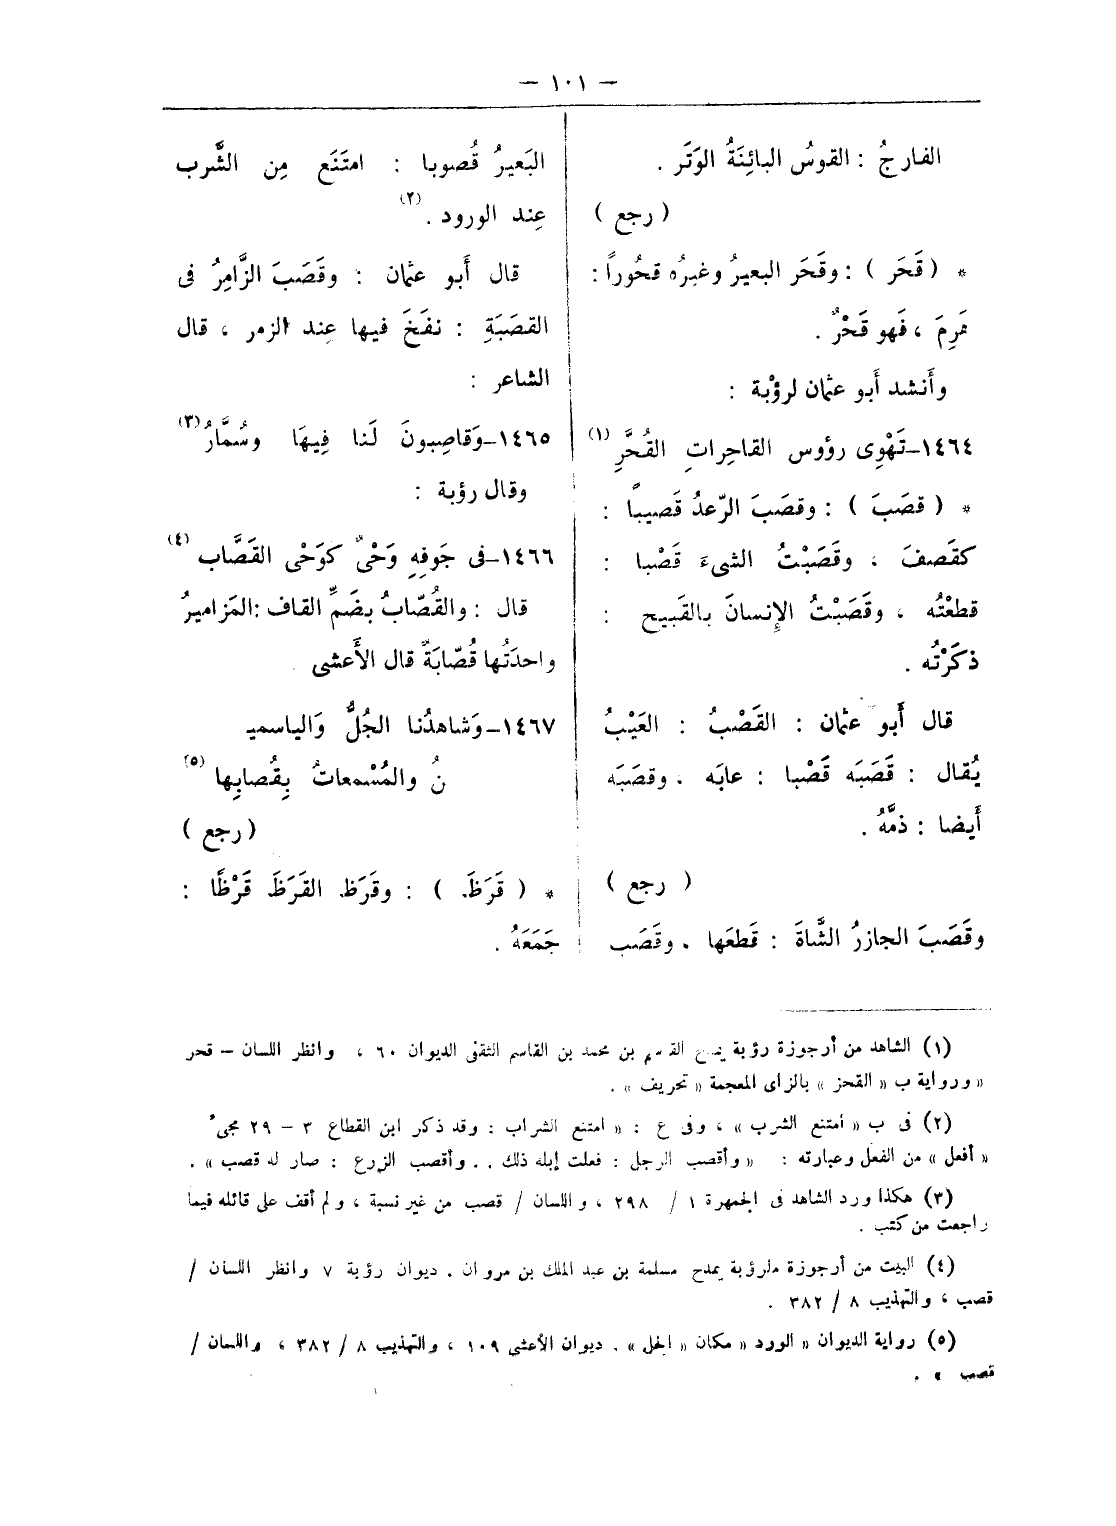 — ١٠١ —
الفارجُ : القوسُ البائِنَةُ الوَتَر .
( رجع )
* ( قَحَر ) : وقَحَر البعيرُ وغيرُه قحُوراً :
هَرِمَ ، فَهو قَحْرٌ .
وأَنشد أَبو عثمان لرؤْبة :
١٤٦٤–تَهْوِى رؤوس القاحِراتِ القُحَّرِ (١)
* ( قصَبَ ) : وقصَبَ الرّعدُ قَصيبًا :
كقَصفَ ، وقَصَبْتُ الشىءَ قَصْبا :
قطعْتُه ، وقَصَبْتُ الإِنسانَ بالقَبيح :
ذكَرْتُه .
قال أَبو عثمان : القَصْبُ : العَيْبُ
يُقال : قَصَبَه قَصْبا : عابَه . وقصَبَه
أَيضا : ذمَّهُ .
( رجع )
وقَصَبَ الجازرُ الشَّاةَ : قَطعَها . وقَصَب
البَعيرُ قُصوبا : امتَنَع مِن الشُّرب
عِند الورود . (٢)
قال أَبو عثمان : وقَصَبَ الزَّامِرُ فى
القصَبَةِ : نفَخَ فيها عِند الزمر ، قال
الشاعر :
١٤٦٥–وَقاصِبونَ لَنا فِيهَا وسُمَّارُ (٣)
وقال رؤبة :
١٤٦٦–فى جَوفِهِ وَحْىٌ كوَحْى القَصَّاب (٤)
قال : والقُصّابُ بضَمِّ القاف :المَزاميرُ
واحدَتُها قُصّابَةٌ قال الأَعشى .
١٤٦٧–وَشاهدُنا الجُلُّ وَالياسميـ
نُ والمُسْمعاتُ بِقُصابِها (٥)
( رجع )
* ( قَرَظَ ) : وقَرَظ القَرَظَ قَرْظًا :
جَمَعَهُ .
(١) الشاهد من أرجوزة رؤبة يمدح القاسم بن محمد بن القاسم الثقفى الديوان ٦٠ ، وانظر اللسان – قحر
« ورواية ب « القحز » بالزاى المعجمة « تحريف » .
(٢) فى ب « أمتنع الشرب » ، وفى ع : « امتنع الشراب : وقد ذكر ابن القطاع ٣ – ٢٩ مجىء
« أفعل » من الفعل وعبارته : « وأقصب الرجل : فعلت إبله ذلك . . وأقصب الزرع : صار له قصب » .
(٣) هكذا ورد الشاهد فى الجمهرة ١ / ٢٩٨ ، واللسان / قصب من غير نسبة ، ولم أقف على قائله فيما
راجعت من كتب .
(٤) البيت من أرجوزة لرؤبة يمدح مسلمة بن عبد الملك بن مروان . ديوان رؤبة ٧ وانظر اللسان /
قصب ، والتهذيب ٨ / ٣٨٢ .
(٥) رواية الديوان « الورد » مكان « الجل » . ديوان الأعشى ١٠٩ ، والتهذيب ٨ / ٣٨٢ ، واللسان /
قصب » .